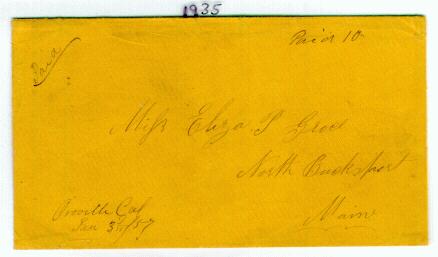 1935
Paid
Paid 10
Miss Eliza P
North Bucksport
Maine
Oroville Cal
Jan 3/57